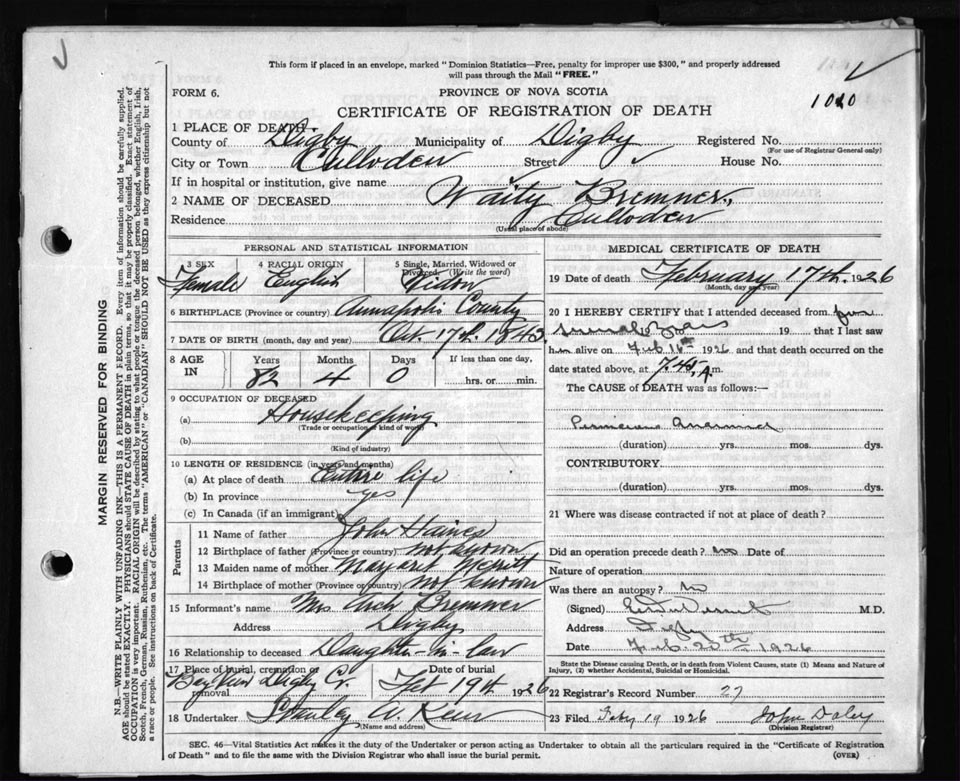 This form if placed in an envelope, marked "Dominion Statistics—Free, penalty for improper use $300," and properly addressed
will pass through the Mail "FREE."
FORM 6.
PROVINCE OF NOVA SCOTIA
1010
CERTIFICATE OF REGISTRATION OF DEATH
1 PLACE OF DEATH—
County of Digby Municipality of Digby Registered No.
(For use of Registrar General only)
City or Town Culloden Street House No.
If in hospital or institution, give name
2 NAME OF DECEASED Waity Bremner,
Residence Culloden
(Usual place of abode)
PERSONAL AND STATISTICAL INFORMATION
3 SEX 4 RACIAL ORIGIN 5 Single, Married, Widowed or
Divorced. (Write the word)
Female English Widow
6 BIRTHPLACE (Province or country) Annapolis County
7 DATE OF BIRTH (month, day and year) Oct. 17th. 1843.
8 AGE IN Years Months Days If less than one day,
82 4 0 hrs. or min.
9 OCCUPATION OF DECEASED
(a) Housekeeping
(Trade or occupation or kind of work)
(b)
(Kind of industry)
10 LENGTH OF RESIDENCE (in years and months)
(a) At place of death Entire life
(b) In province yes
(c) In Canada (if an immigrant)
Parents
11 Name of father John Haines
12 Birthplace of father (Province or country) not known
13 Maiden name of mother Margaret Merritt
14 Birthplace of mother (Province or country) not known
15 Informant's name Mrs Bremner
Address Digby
16 Relationship to deceased Daughter-in-law
17 Place of burial, cremation or removal Date of burial
Digby Co. Fet 19th 1926
18 Undertaker Stanley W.
(Name and address)
MEDICAL CERTIFICATE OF DEATH
19 Date of death February 17th. 1926
(Month, day and year)
20 I HEREBY CERTIFY that I attended deceased from for
several years 19 that I last saw
him alive on Feb 16th 1926 and that death occurred on the
date stated above, at 7.45 A.m.
The CAUSE of DEATH was as follows:—
Pernicious Anaemia
(duration) yrs. mos. dys.
CONTRIBUTORY
(duration) yrs. mos. dys.
21 Where was disease contracted if not at place of death?
Did an operation precede death? no Date of
Nature of operation
Was there an autopsy? no
(Signed) M.D.
Address Digby
Date Feb 20th 1926
State the Disease causing Death, or in death from Violent Causes, state (1) Means and Nature of
Injury, (2) whether Accidental, Suicidal or Homicidal.
22 Registrar's Record Number 27
23 Filed Feby 19 1926 John Daley
(Division Registrar)
SEC. 46—Vital Statistics Act makes it the duty of the Undertaker or person acting as Undertaker to obtain all the particulars required in the "Certificate of Registration
of Death" and to file the same with the Division Registrar who shall issue the burial permit.
(OVER)
MARGIN RESERVED FOR BINDING
N.B.—WRITE PLAINLY WITH UNFADING INK—THIS IS A PERMANENT RECORD. Every item of information should be carefully supplied.
AGE should be stated EXACTLY. PHYSICIANS should STATE CAUSE OF DEATH in plain terms, so that it may be properly classified. Exact statement of
OCCUPATION is very important. RACIAL ORIGIN will be described by stating to what people or tongue the deceased person belonged, whether English, Irish,
Scotch, French, German, Russian, Ruthenian, etc. The terms "AMERICAN" or "CANADIAN" SHOULD NOT BE USED as they express citizenship but not
a race or people. See instructions on back of Certificate.